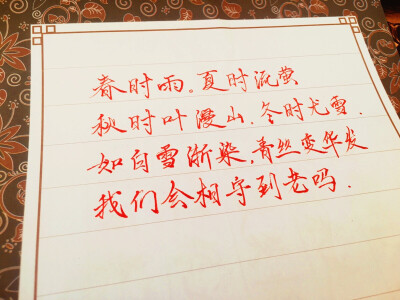 春时雨。夏时流萤
秋时叶漫山.冬时尤雪.
如白雪渐染,青丝变华发
我们会相守到老吗.